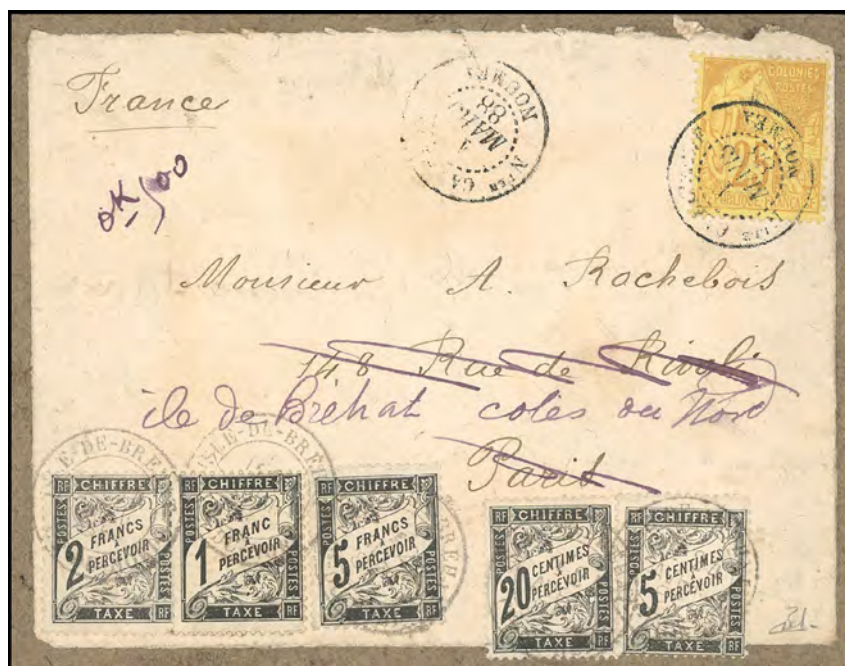 France
NOUMEA
MARS
88
COLONIES
POSTES
25
NOUMEA
Monsieur A. Rochebois
148 Rue de Rivoli
île de Bréhat cotes du Nord
Paris
ISLE-DE-BREH
RF CHIFFRE
POSTES 2 FRANCS PERCEVOIR POSTES
TAXE RF
RF CHIFFRE
POSTES 1 FRANC PERCEVOIR POSTES
TAXE RF
RF CHIFFRE
POSTES 5 FRANCS PERCEVOIR POSTES
TAXE RF
RF CHIFFRE
POSTES 20 CENTIMES PERCEVOIR POSTES
TAXE RF
RF CHIFFRE
POSTES 5 CENTIMES PERCEVOIR POSTES
TAXE RF